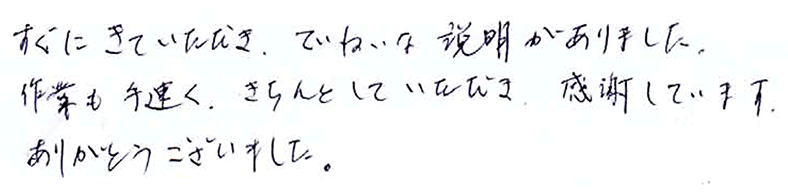 すぐにきていただき、ていねいな説明がありました。
作業も手速く、きちんとしていただき、感謝しています。
ありがとうございました。